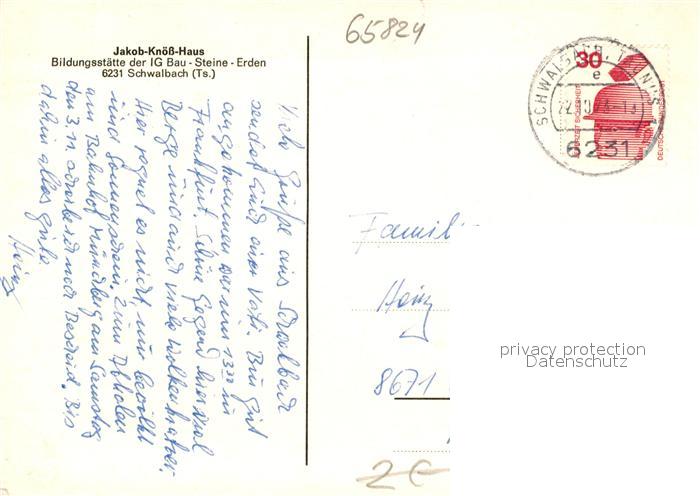 65824
Jakob-Knöß-Haus
Bildungsstätte der IG Bau - Steine - Erden
6231 Schwalbach (Ts.)
Viele Grüße aus Schwalbach
sendet Euch euer Vati. Bin gut
angekommen war um 13⁰⁰ in
Frankfurt. Schöne Gegend hier viel
Berge und auch viele Wolkenkratzer.
Hier regnet es nicht, nur bewölkt
und Sonnenschein. Zum Abholen
am Bahnhof Münchberg am Samstag
den 3.11. schreibe ich noch Bescheid. Bis
dahin alles gute
Heinz
SCHWALBACH, TAUNUS
30
e
6231
JEDERZEIT SICHERHEIT
DEUTSCHE BUNDESPOST
Famili
Heinz
8671
privacy protection
Datenschutz
2€